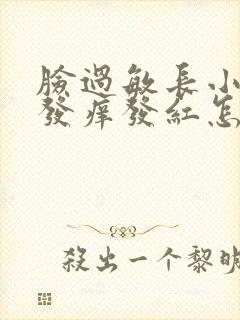 臉過敏長小
發痒發紅怎
殺出一个黎明